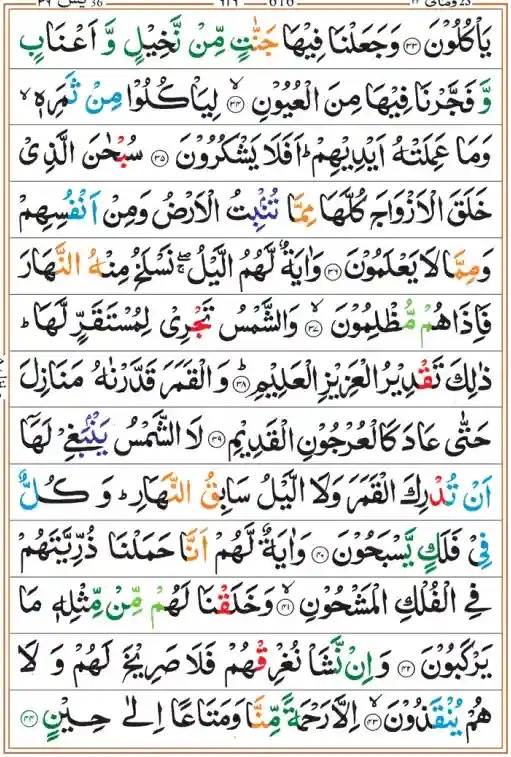 یٰسٓ ٣٦ ٦١٦ ومالی ٢٣
یَاْكُلُوْنَ ﴿٣٣﴾ وَجَعَلْنَا فِیْهَا جَنّٰتٍ مِّنْ نَّخِیْلٍ وَّ اَعْنَابٍ
وَّ فَجَّرْنَا فِیْهَا مِنَ الْعُیُوْنِ ﴿٣٤﴾ۙ لِیَاْكُلُوْا مِنْ ثَمَرِهٖ ۙ
وَمَا عَمِلَتْهُ اَیْدِیْهِمْ ؕ اَفَلَا یَشْكُرُوْنَ ﴿٣٥﴾ سُبْحٰنَ الَّذِیْ
خَلَقَ الْاَزْوَاجَ كُلَّهَا مِمَّا تُنْۢبِتُ الْاَرْضُ وَمِنْ اَنْفُسِهِمْ
وَمِمَّا لَا یَعْلَمُوْنَ ﴿٣٦﴾ وَاٰیَةٌ لَّهُمُ الَّیْلُ ۖۚ نَسْلَخُ مِنْهُ النَّهَارَ
فَاِذَا هُمْ مُّظْلِمُوْنَ ﴿٣٧﴾ۙ وَالشَّمْسُ تَجْرِیْ لِمُسْتَقَرٍّ لَّهَا ؕ
ذٰلِكَ تَقْدِیْرُ الْعَزِیْزِ الْعَلِیْمِ ﴿٣٨﴾ؕ وَالْقَمَرَ قَدَّرْنٰهُ مَنَازِلَ
حَتّٰی عَادَ كَالْعُرْجُوْنِ الْقَدِیْمِ ﴿٣٩﴾ لَا الشَّمْسُ یَنْۢبَغِیْ لَهَاۤ
اَنْ تُدْرِكَ الْقَمَرَ وَلَا الَّیْلُ سَابِقُ النَّهَارِ ؕ وَ كُلٌّ
فِیْ فَلَكٍ یَّسْبَحُوْنَ ﴿٤٠﴾ وَاٰیَةٌ لَّهُمْ اَنَّا حَمَلْنَا ذُرِّیَّتَهُمْ
فِی الْفُلْكِ الْمَشْحُوْنِ ﴿٤١﴾ۙ وَخَلَقْنَا لَهُمْ مِّنْ مِّثْلِهٖ مَا
یَرْكَبُوْنَ ﴿٤٢﴾ وَاِنْ نَّشَاْ نُغْرِقْهُمْ فَلَا صَرِیْخَ لَهُمْ وَ لَا
هُمْ یُنْقَذُوْنَ ﴿٤٣﴾ۙ اِلَّا رَحْمَةً مِّنَّا وَمَتَاعًا اِلٰی حِیْنٍ ﴿٤٤﴾